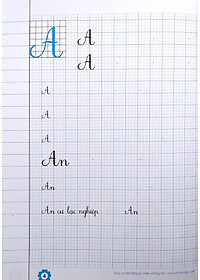 A A
A
A
A
A
An
An
An cư lạc nghiệp An
4